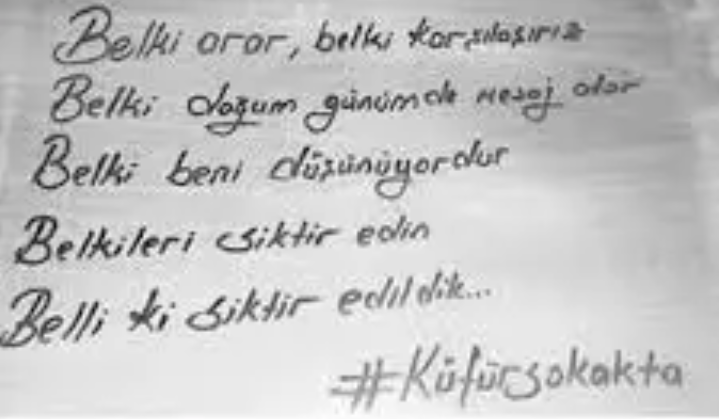 Belki arar, belki karşılaşırız
Belki doğum günümde mesaj atar
Belki beni düşünüyordur
Belkileri siktir edin
Belli ki siktir edildik...
#Küfürsokakta